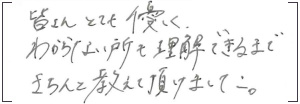 皆さん とても 優しく、
わからない所も 理解できるまで
きちんと教えて頂けました。